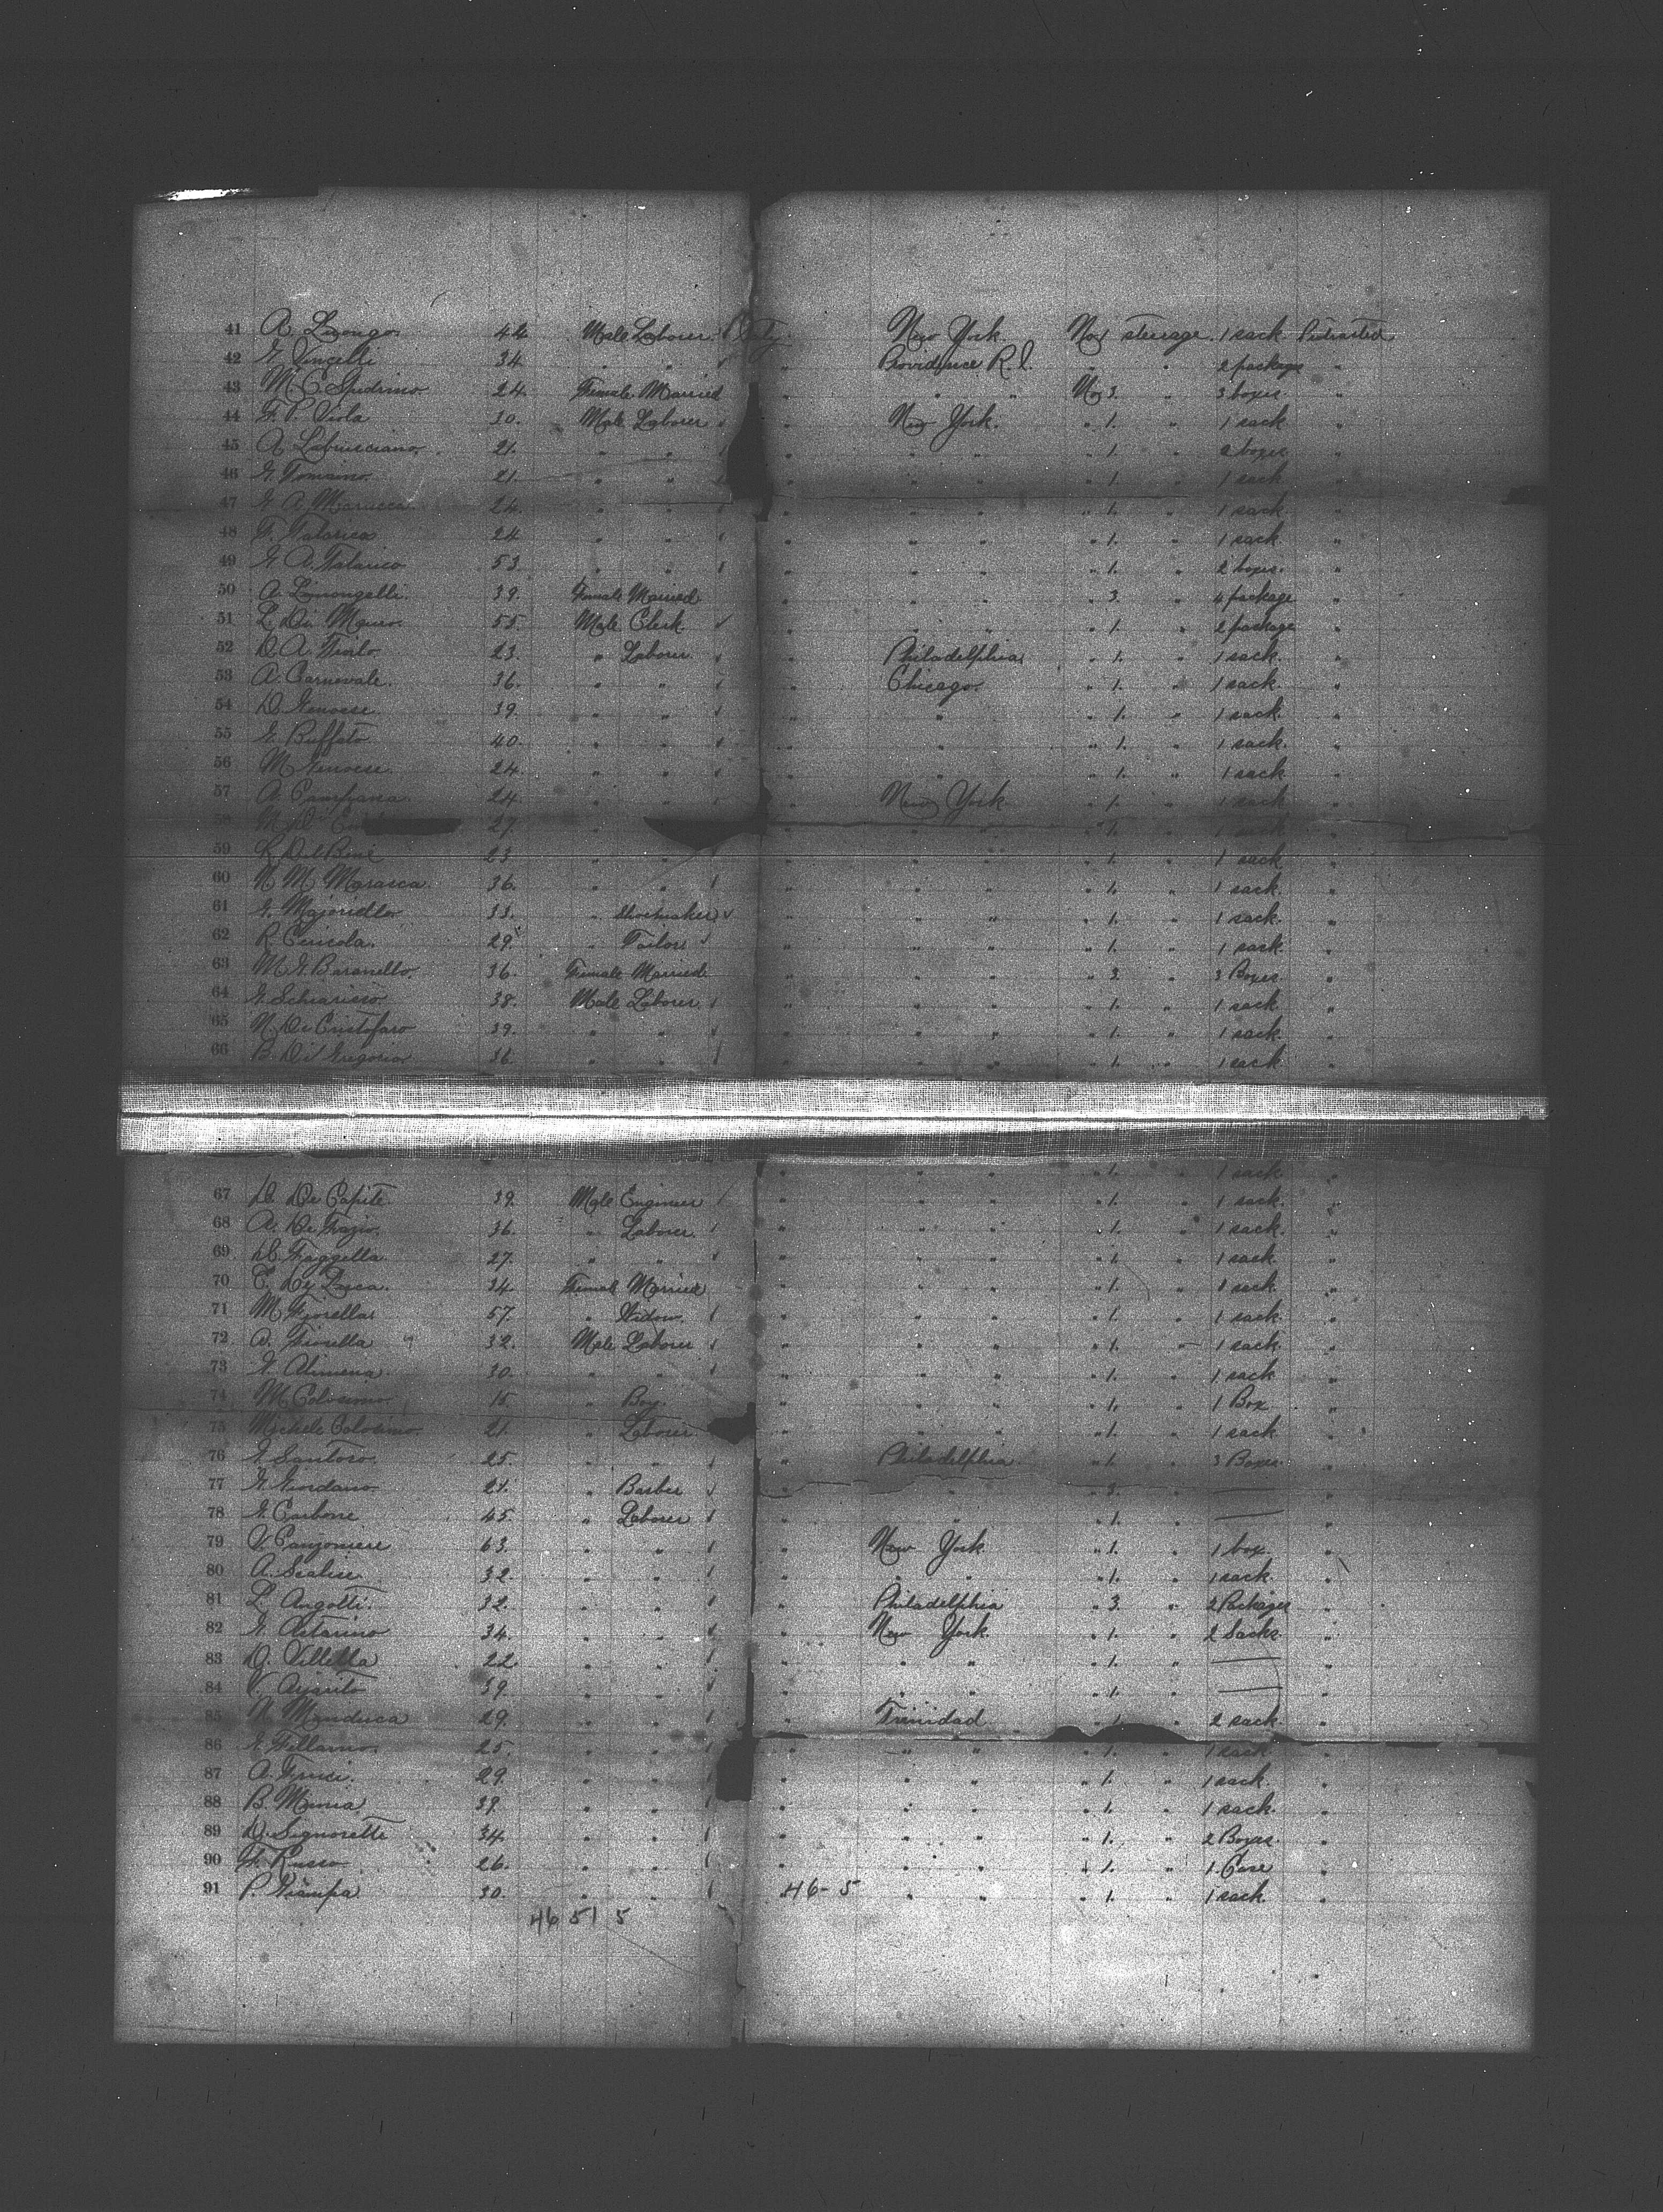 41 A. Longo. 42 Male Laborer. Italy. New York No 1 steerage. 1 sack Protracted
42 G. Vincelli 34 " " " Providence R. I. " " 2 package "
43 M. C. Spidrino 24. Female Married " " " No 3. " 3 boxes "
44 F. P. Viola 30. Male Laborer " New York. " 1. " 1 sack "
45 A. Labrusciano. 21. " " " " " " 1. " 2 boxes "
46 G. Tomaino. 21. " " " " " " 1. " 1 sack "
47 G. A. Marasca 24. " " " " " " 1. " 1 sack "
48 F. Talarico 24 " " " " " " 1. " 1 sack "
49 G. A. Talarico 53. " " " " " " 1. " 2 boxes. "
50 A. Limongelli. 39. Female Married " " " " 3. " 4 package "
51 L. Di Mauro. 55. Male Clerk. " " " " 1. " 2 package "
52 D. A. 23. " Laborer. " Philadelphia " 1. " 1 sack. "
53 A. Carnevale. 36. " " " Chicago. " 1. " 1 sack. "
54 D. Genoese. 39. " " " " " 1. " 1 sack. "
55 G. Buffeto 40. " " " " " 1. " 1 sack. "
56 M. Genoese. 24. " " " " " 1. " 1 sack "
57 A. Campana. 24. " " " New York. " 1. " 1 sack "
58 27. " " " " " 1. " 1 sack "
59 Del Bene 23 " " " " " " 1. " 1 sack "
60 N. M. Marasca. 36. " " " " " " 1. " 1 sack. "
61 G. Majoriello 33. " Shoemaker " " " " 1. " 1 sack. "
62 R. 29. " Tailor " " " " 1. " 1 sack. "
63 M. G. Baranello. 36. Female Married " " " " 3. " 3 Boxes "
64 G. Schiarisso 38. Male Laborer. " " " " 1. " 1 sack. "
65 N. De Cristofaro 39. " " " " " " 1. " 1 sack. "
66 B. Di Gregorio. 36 " " " " " " 1. " 1 sack "
" " " " 1. " 1 sack
67 D. De Capite. 39. Male Engineer " " " " 1. " 1 sack. "
68 A. De Fazio. 36. " Laborer. " " " " 1. " 1 sack. "
69. Fraggella 27. " " " " " " 1. " 1 sack "
70 C. De Luca. 34 Female Married " " " " 1. " 1 sack. "
71 M. Fiorella 57. " Widow. " " " " 1. " 1 sack. "
72 A. Fiorella 32. Male Laborer " " " " 1. " 1 sack. "
73 G. Alimena. 30. " " " " " " 1. " 1 sack "
74 M. Colosimo. 15. " Boy. " " " " 1. " 1 Box. "
75 Michele Colosimo. 21. " Laborer. " " " " 1. " 1 sack "
76 G. Santoro. 25. " " " Philadelphia. " 1. " 3 Boxes. "
77 G. Giordano. 21. " Barber " " " 3. " — "
78 G. Carbone 45. " Laborer " " " 1. " — "
79 V. Canzoniere 63. " " " New York. " 1. " 1 box. "
80 A. Scalise. 32. " " " " " " 1. " 1 sack. "
81 L. Angotti. 32. " " " Philadelphia " 3. " 2 Packages "
82 G. Astarino 34. " " " New York. " 1. " 2 Sacks "
83 D. Villella 22 " " " " " " 1. " — "
84 V. 39. " " " " " " 1. " — "
85 A. Manduca 29. " " " Trinidad " 1. " 2 sack. "
86 G. Fillarino. 25. " " " " " " 1. " 1 sack "
87 A. Fruci. 29. " " " " " " 1. " 1 sack. "
88 B. Munia 39. " " " " " " 1. " 1 sack. "
89 D. Signoretti 34. " " " " " " 1. " 2 Boxes. "
90 F. Russo 26. " " " " " " 1. " 1 Case "
91 P. Giampa 30. " " 46-5 " " " 1. " 1 sack. "
46 51 5